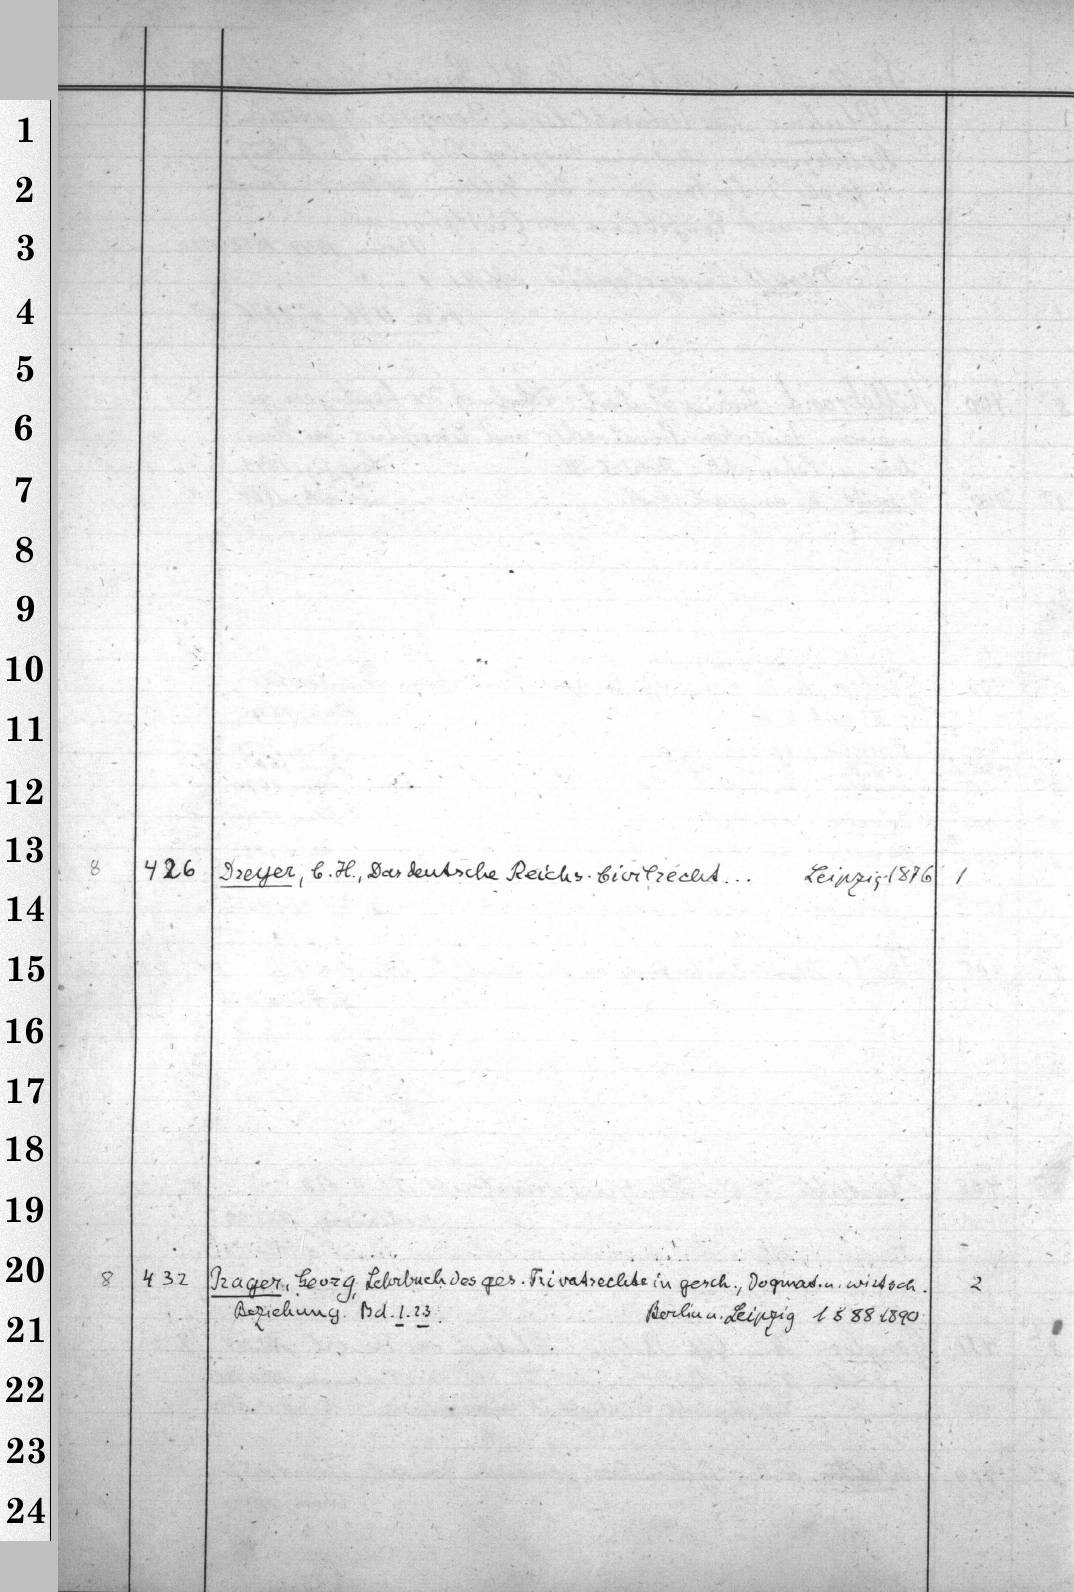 1
2
3
4
5
6
7
8
9
10
11
12
13
8 426 Dreyer, C. H., Das deutsche Reichs-Civilrecht... Leipzig 1876 1
14
15
16
17
18
19
20
8 432 Prager, Georg, Lehrbuch des ges. Privatrechts in gesch., dogmat. u. wirtsch.
21
Beziehung. Bd. 1. 23. Berlin u. Leipzig 1888-1890 2
22
23
24